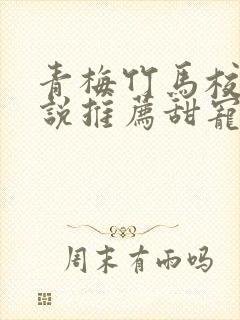 青梅竹馬校
說推薦甜寵
周末有雨吗